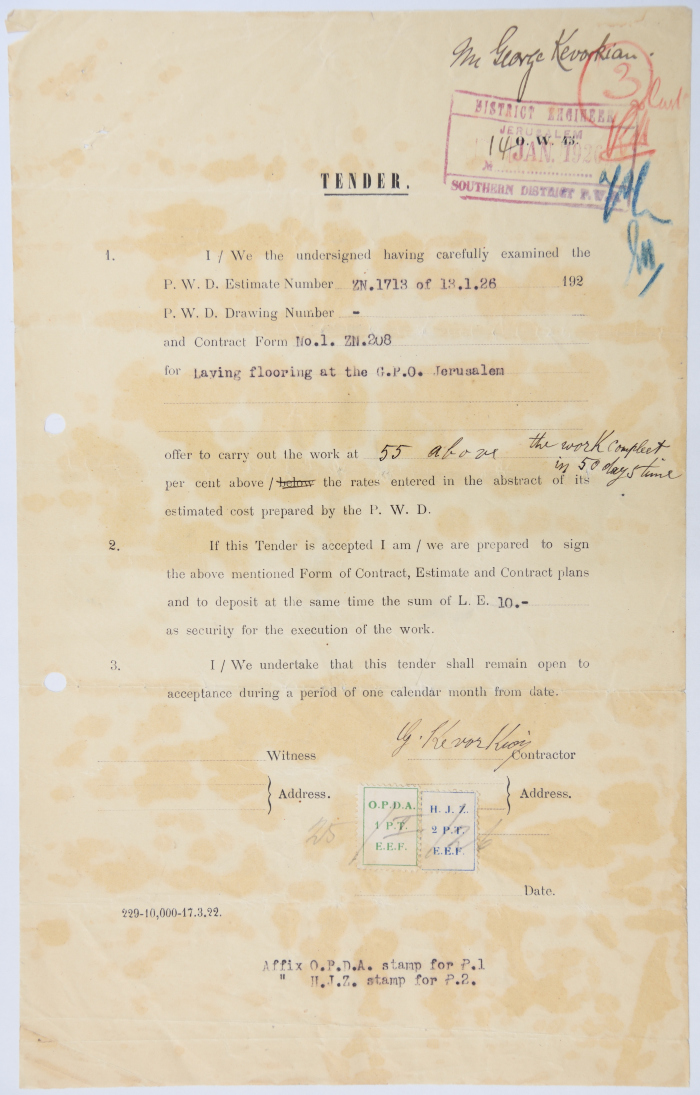 Mr George Kevorkian.
3
DISTRICT ENGINEER
JERUSALEM
O. W. 43.
14 JAN. 1926
SOUTHERN DISTRICT P.W.D.
TENDER.
1. I / We the undersigned having carefully examined the
P. W. D. Estimate Number ZN.1713 of 13.1.26 192
P. W. D. Drawing Number -
and Contract Form No.1. ZN.208
for Laying flooring at the G.P.O. Jerusalem
offer to carry out the work at 55 above the work compleet
in 50 days time
per cent above / below the rates entered in the abstract of its
estimated cost prepared by the P. W. D.
2. If this Tender is accepted I am / we are prepared to sign
the above mentioned Form of Contract, Estimate and Contract plans
and to deposit at the same time the sum of L. E. 10.-
as security for the execution of the work.
3. I / We undertake that this tender shall remain open to
acceptance during a period of one calendar month from date.
G. Kevorkian
Witness Contractor
Address. Address.
O.P.D.A. H. J. Z.
1 P.T. 2 P.T.
E.E.F. E.E.F.
Date.
229-10,000-17.3.22.
Affix O.P.D.A. stamp for P.1
" H.J.Z. stamp for P.2.